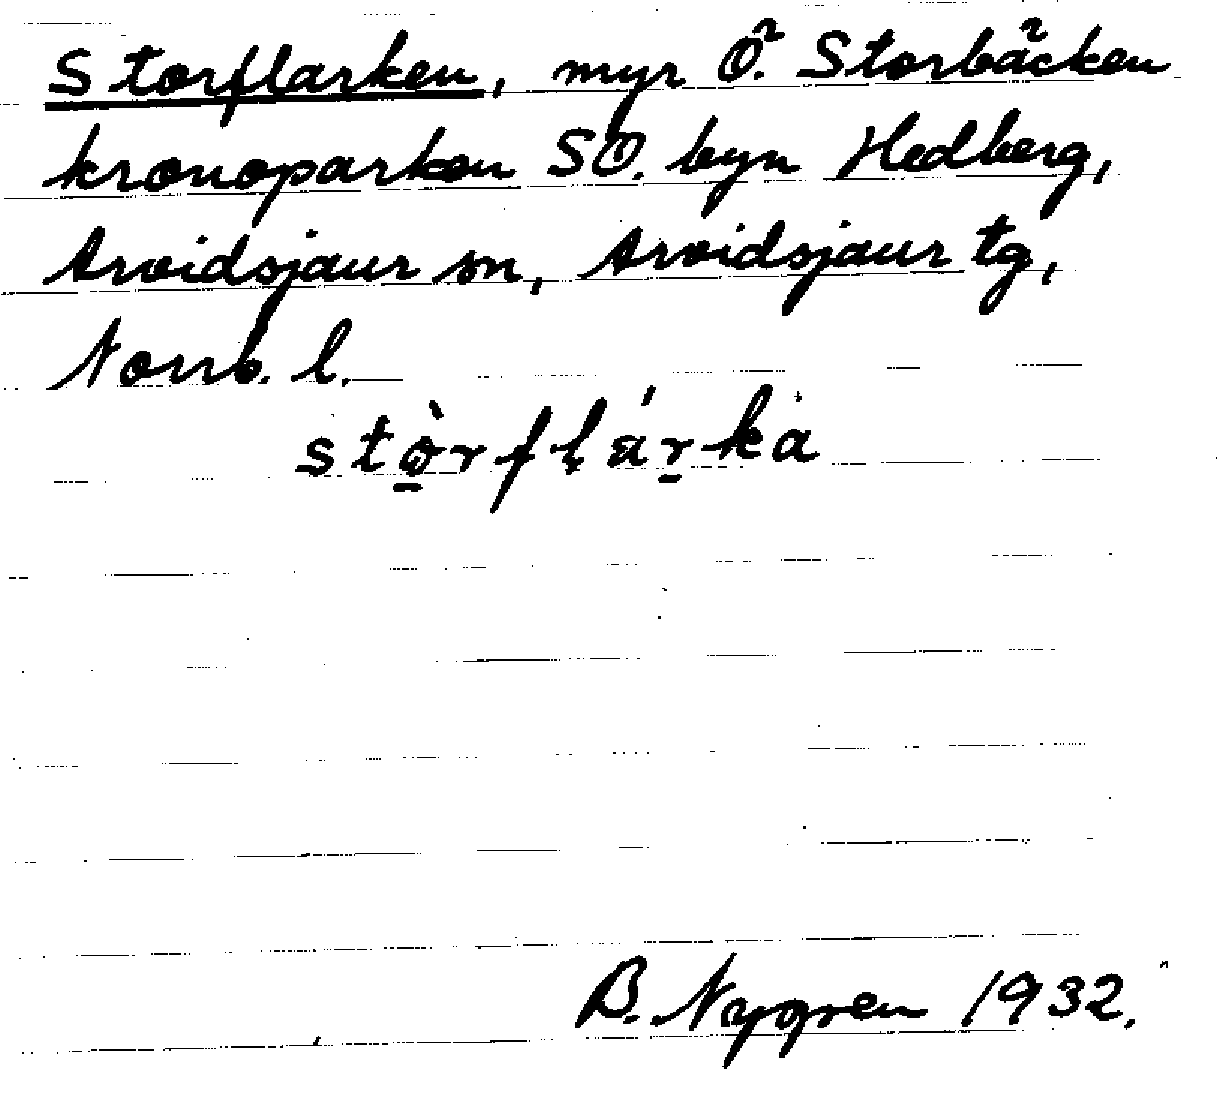 Storflarken, myr Ö. Storbäcken
kronoparken SO. byn Hedberg,
Arvidsjaur sn, Arvidsjaur tg,
Norrb. l.
stò̱rflá̱rka
B. Nygren 1932.